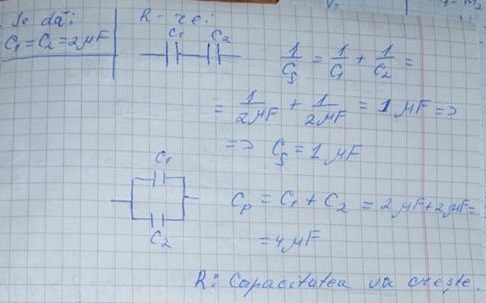 Se dă:
C₁ = C₂ = 2 μF
R-re:
C₁ C₂
1/Cs = 1/C₁ + 1/C₂ =
= 1/2μF + 1/2μF = 1 μF =>
=> Cs = 1 μF
C₁
Cp = C₁ + C₂ = 2 μF + 2 μF =
C₂
= 4 μF
R: Capacitatea va crește.